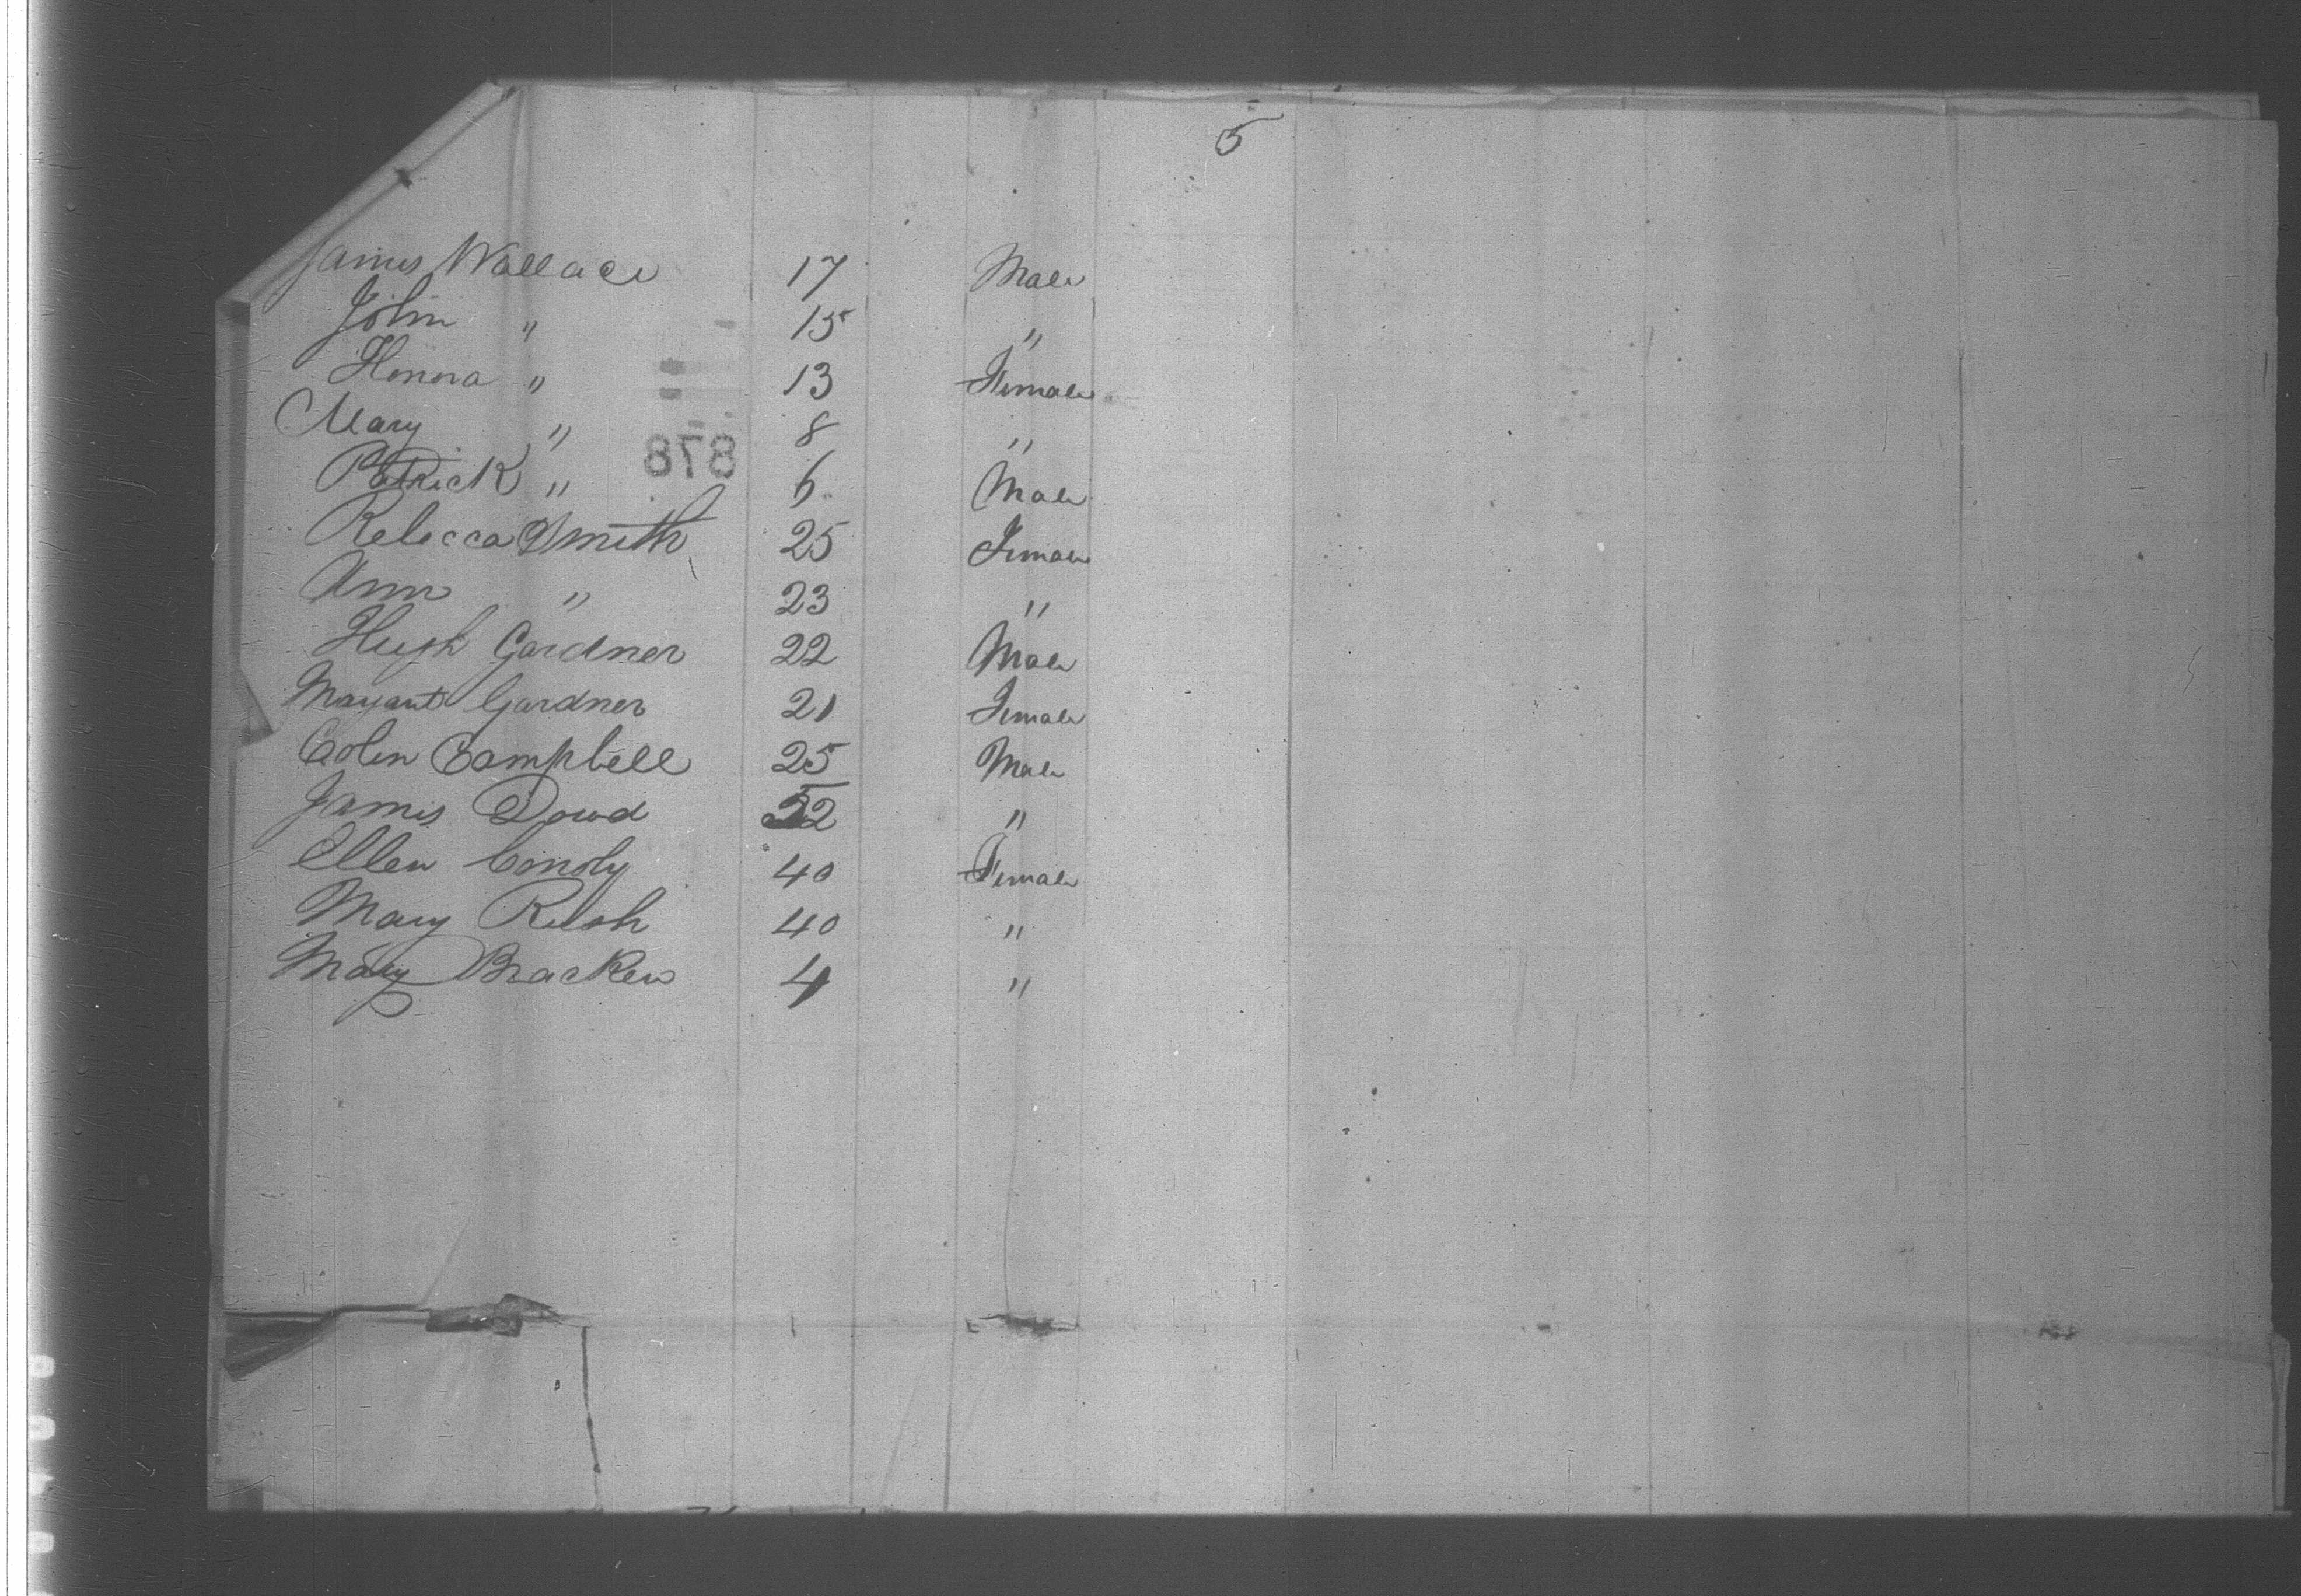 5
James Wallace 17 Male
John " 15 "
Honora " 13 Female
Mary " 8 "
Patrick " 6 Male
878
Rebecca Smith 25 Female
Ann " 23 "
Hugh Gardner 22 Male
Margaret Gardner 21 Female
Colin Campbell 25 Male
James Dowd 52 "
Ellen Conoly 40 Female
Mary Rush 40 "
Mary Bracken 4 "